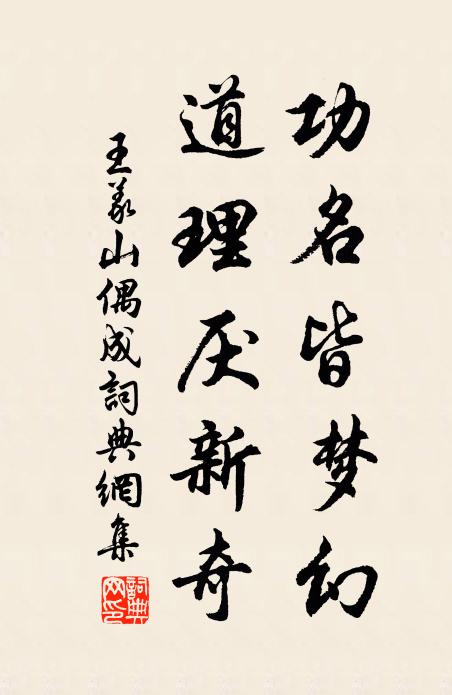 功名皆梦幻
道理厌新奇
王义山偶成詞典網集
詞典网印